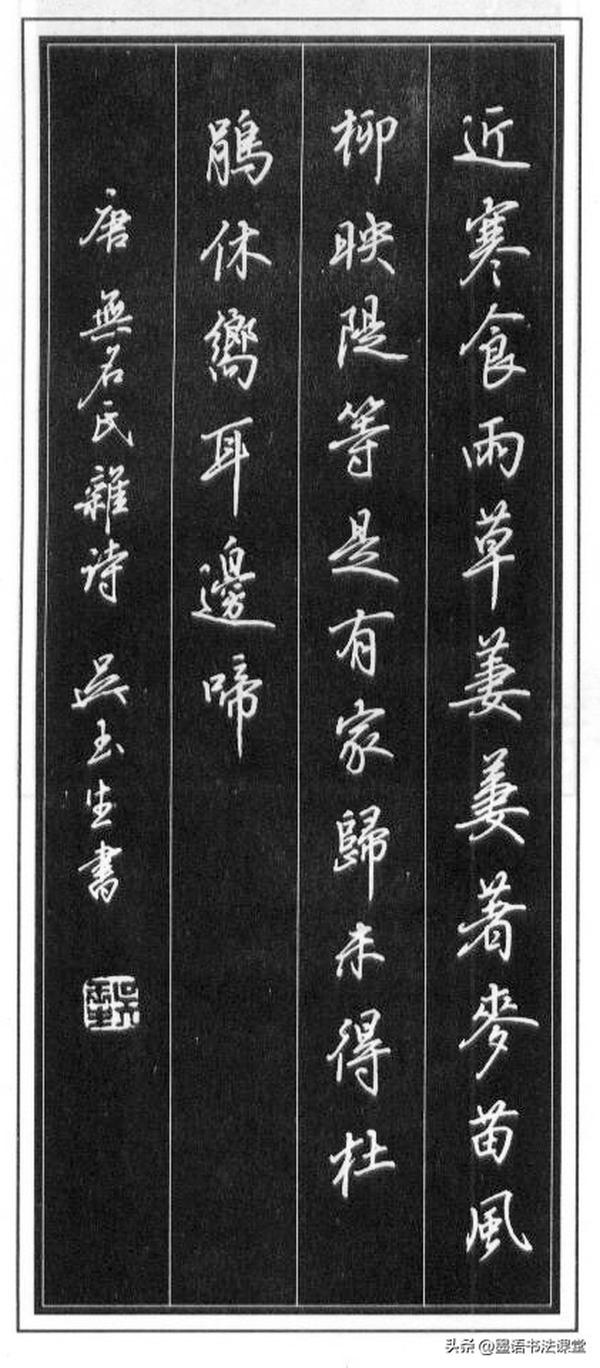 近寒食雨草萋萋著麥苗風
柳映隄等是有家歸未得杜
鵑休嚮耳邊啼
唐 無名氏雜诗 吳玉生書
吴玉生
头条 @墨语书法课堂